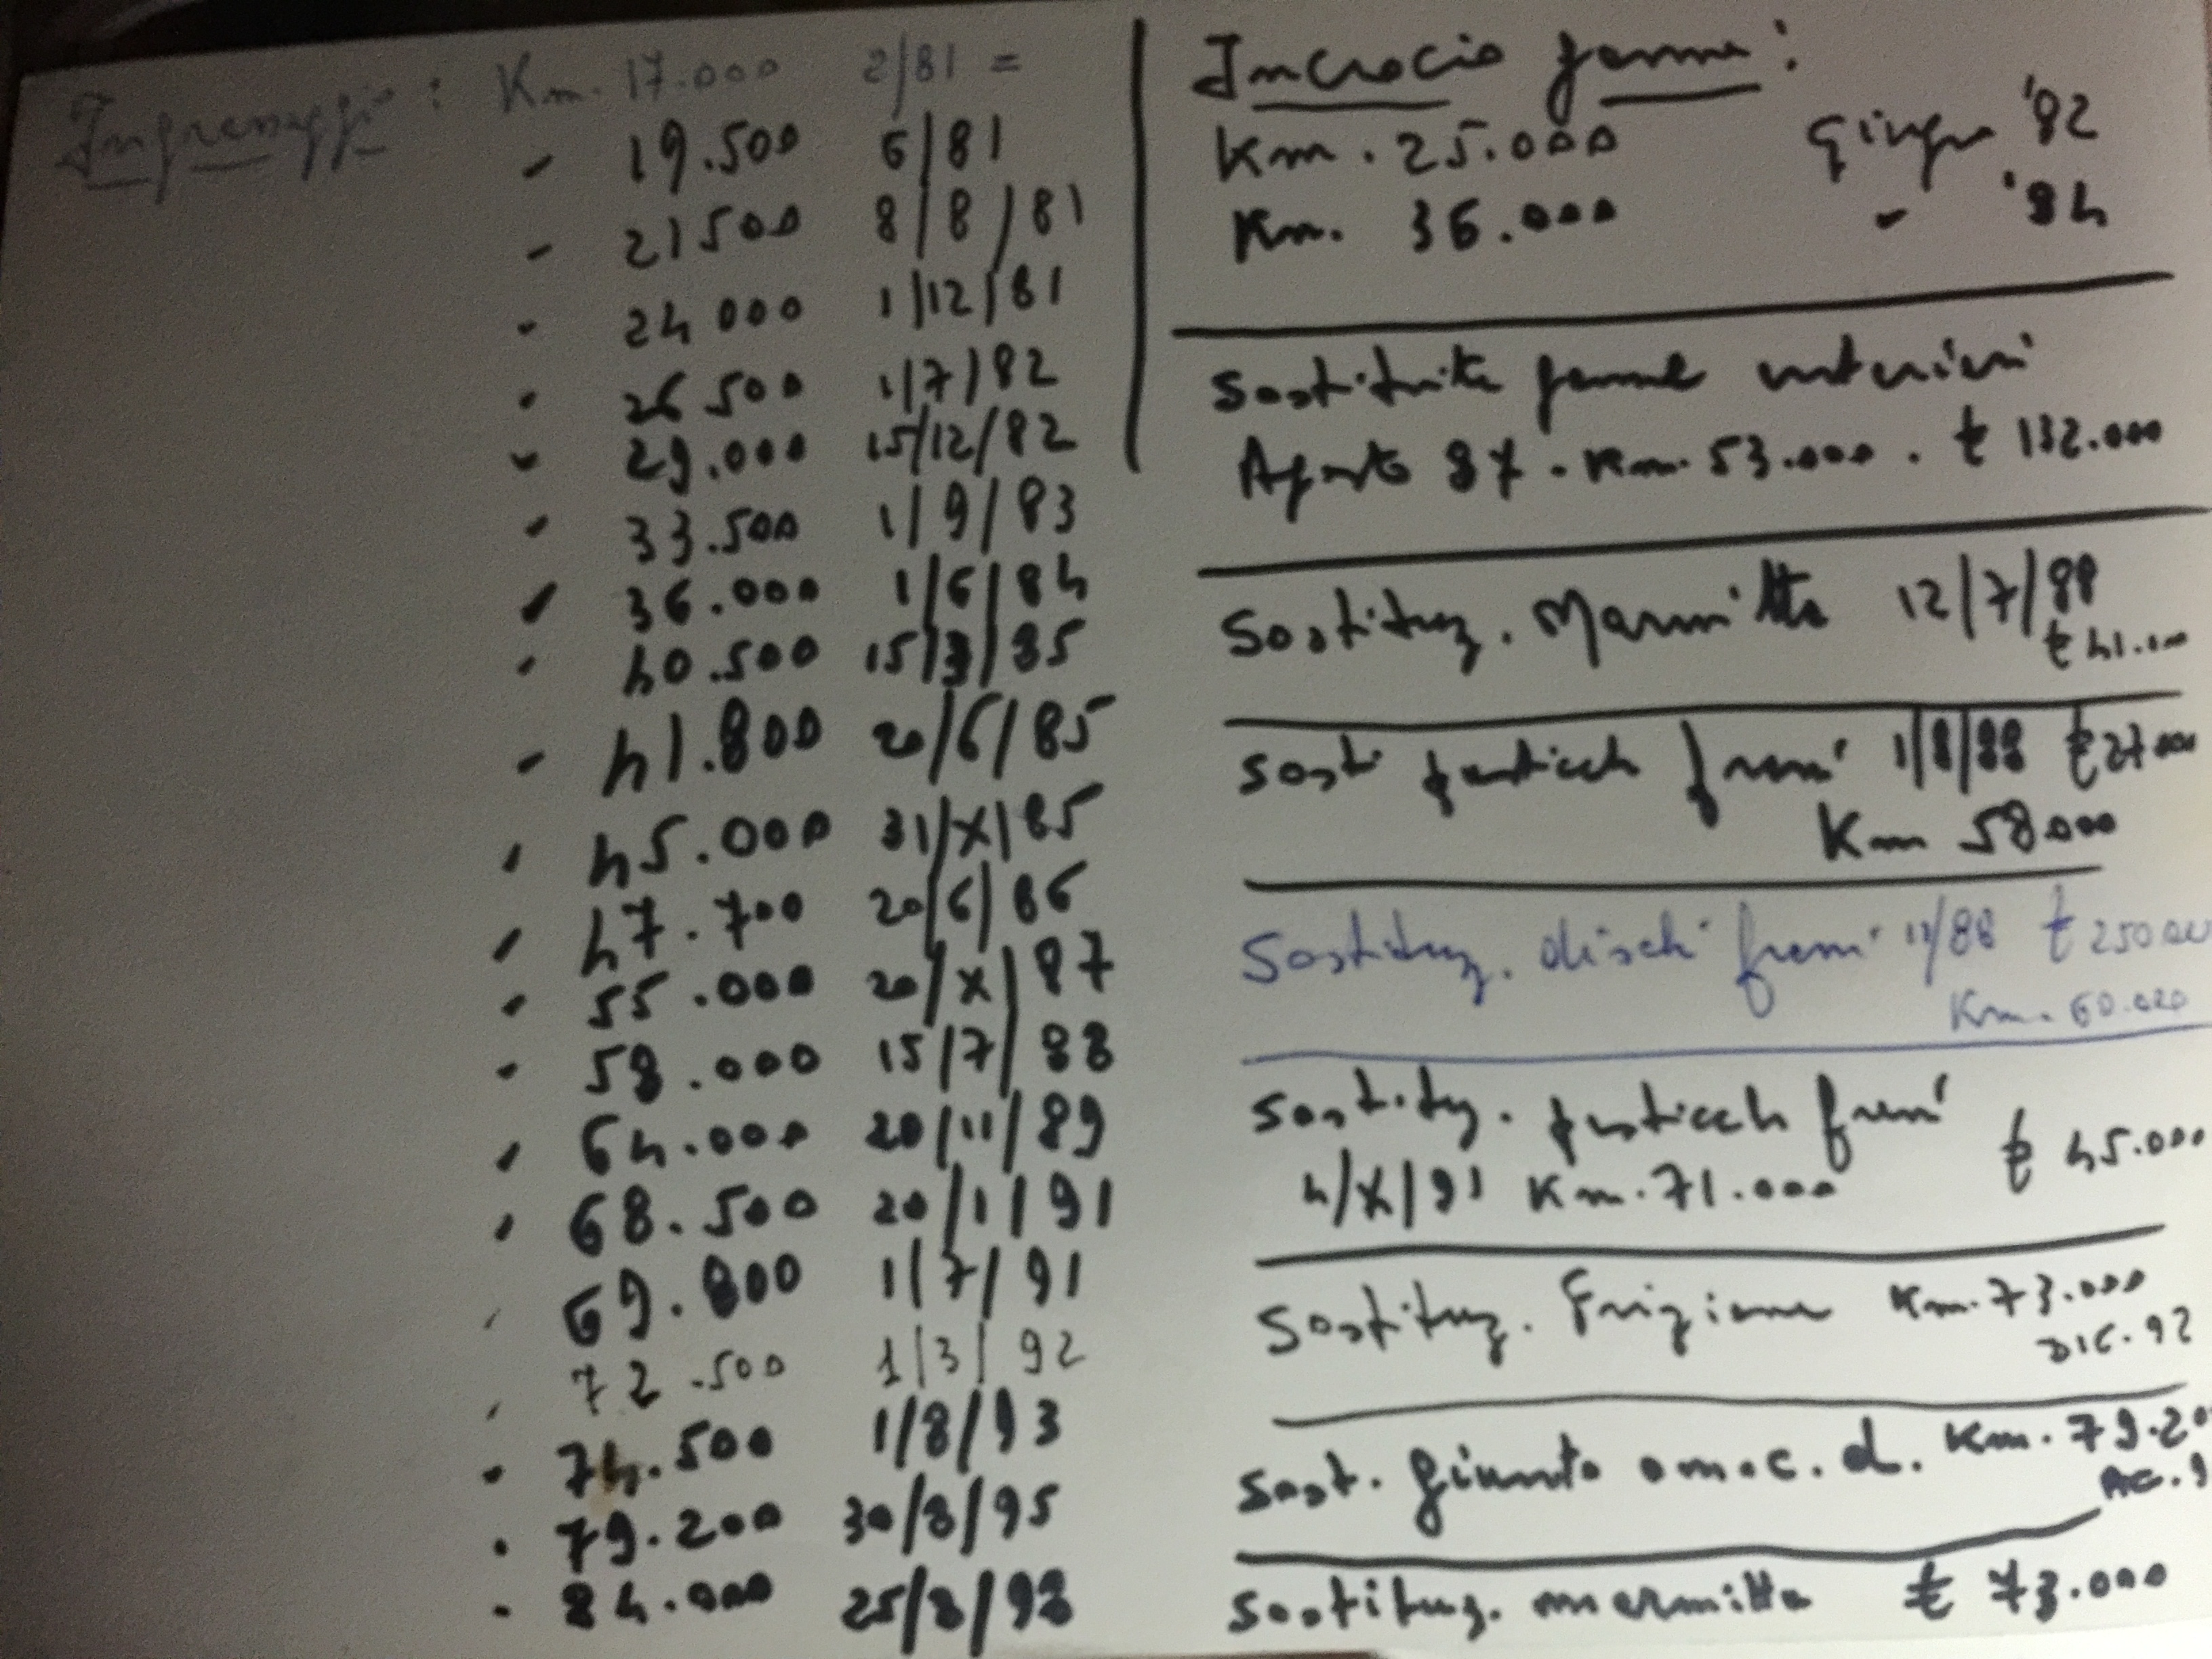 Ingrenaggi : Km. 17.000 2/81 =
" 19.500 6/81
" 21500 8/8/81
" 24000 1/12/81
" 26 500 1/7/82
" 29.000 15/12/82
" 33.500 1/9/83
" 36.000 1/6/84
" 40.500 15/3/85
" 41.800 20/6/85
" 45.000 31/X/85
" 47.700 20/6/86
" 55.000 20/X/87
" 58.000 15/7/88
" 64.000 20/11/89
" 68.500 20/1/91
" 69.800 1/7/91
" 72.500 1/3/92
" 74.500 1/8/93
" 79.200 30/8/95
" 84.000 25/8/98
Incrocio gomme :
Km. 25.000 Giugno '82
Km. 36.000 " '84
Sostituite gomme anteriori
Agosto 87 - Km. 53.000. £ 132.000
Sostituz. Marmitta 12/7/88
£ 41.000
Sost. pasticch freni 1/8/88 £ 27000
Km 58000
Sostituz. dischi freni 11/88 £ 250000
Km. 60.020
Sostituz. pasticch freni £ 45.000
4/X/91 Km. 71.000
Sostituz. Frizione Km. 73.000
DIC. 92
Sost. giunto omoc. d. Km. 79.20
AG. 9
Sostituz. marmitta £ 73.000